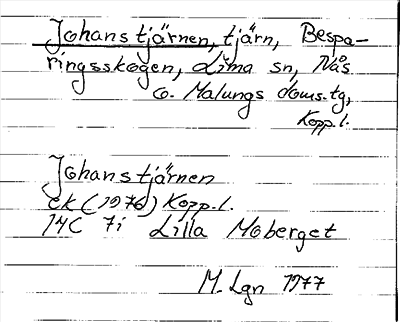 Johanstjärnen, tjärn, Bespa-
ringsskogen, Lima sn, Nås
o. Malungs doms.tg,
Kopp.l.
Johanstjärnen
ek (1976) Kopp.l.
14C 7i Lilla Moberget
M. Lgn 1977